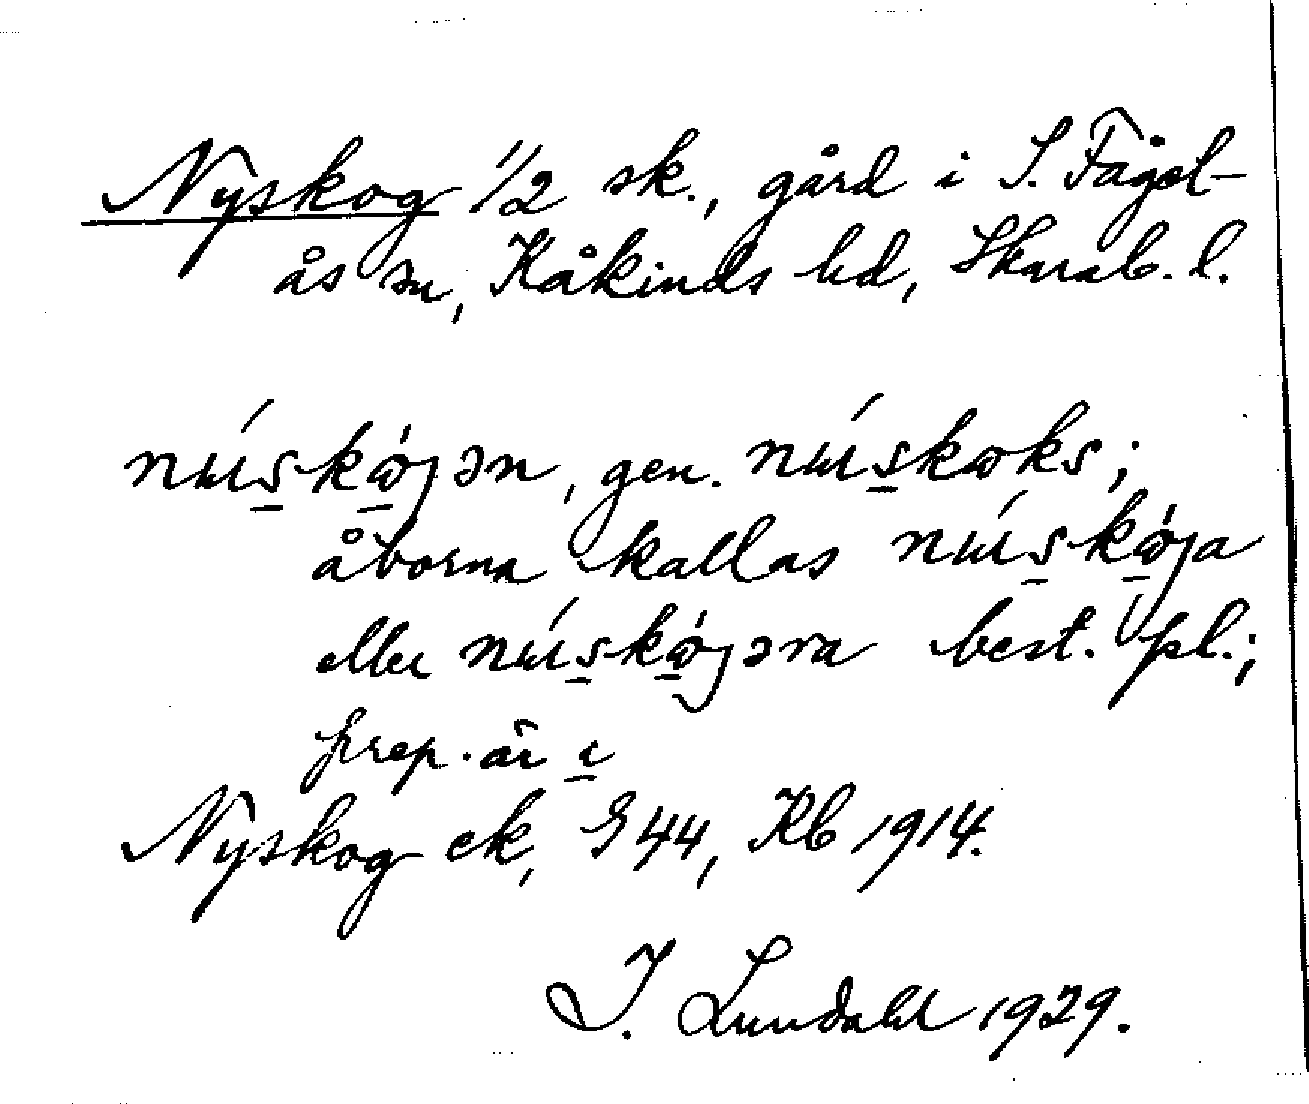 Nyskog 1/2 sk., gård i S. Fågel-
ås sn, Kåkinds hd, Skarab. l.
nɯ́s̱kώ̱ɡən, gen. nɯ́s̱kωks;
åborna kallas nɯ́s̱kώ̱ɡa
eller nɯ́s̱kώ̱ɡəra best. pl.;
prep. är ɩ̱
Nyskog ek, G 44, Kb 1914.
I. Lundahl 1929.